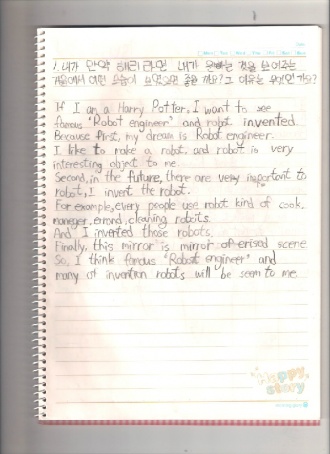 1. 내가 만약 해리라면 내가 원하는 것을 보여주는
거울에서 어떤 모습이 보였으면 좋을까요? 그 이유는 무엇인가요?
If I am a Harry Potter, I want to see
famous "Robot engineer" and robot invented.
Because first, my dream is Robot engineer.
I like to make a robot, and robot is very
interesting object to me.
Second, in the future, there are very important to
robot, I invent the robot.
For example, every people use robot kind of cook,
maneger, errand, cleaning robots.
And I invented those robots.
Finally, this mirror is mirror of erised scene
So, I think famous "Robot engineer" and
many of invention robots will be seem to me.
Happy
story